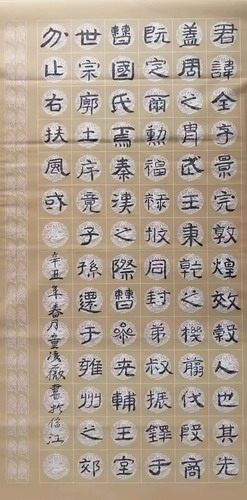 君諱全字景完敦煌效穀人也其先
蓋周之胄武王秉乾之機翦伐殷商
既定爾勳福祿攸同封弟叔振鐸于
曹國氏焉秦漢之際曹參夾輔王室
世宗廓土序竟子孫遷于雍州之郊
分止右扶風或
辛丑年春月童溪書於信江